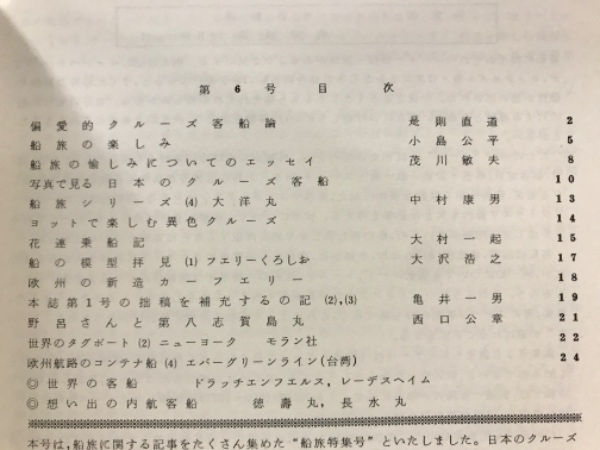 第 6 号 目 次
偏愛的クルーズ客船論 是則直道 2
船旅の楽しみ 小島公平 5
船旅の愉しみについてのエッセイ 茂川敏夫 8
写真で見る 日本のクルーズ客船 10
船旅シリーズ (4) 大洋丸 中村康男 13
ヨットで楽しむ異色クルーズ 14
花連乗船記 大村一起 15
船の模型拝見 (1) フエリーくろしお 大沢浩之 17
欧州の新造カーフエリー 18
本誌第1号の拙稿を補充するの記 (2),(3) 亀井一男 19
野呂さんと第八志賀島丸 西口公章 21
世界のタグボート (2) ニューヨーク モラン社 22
欧州航路のコンテナ船 (4) エバーグリーンライン(台湾) 24
◎世界の客船 ドラッチエンフエルス, レーデスヘイム
◎想い出の内航客船 徳壽丸, 長水丸
本号は,船旅に関する記事をたくさん集めた“船旅特集号”といたしました。日本のクルーズ